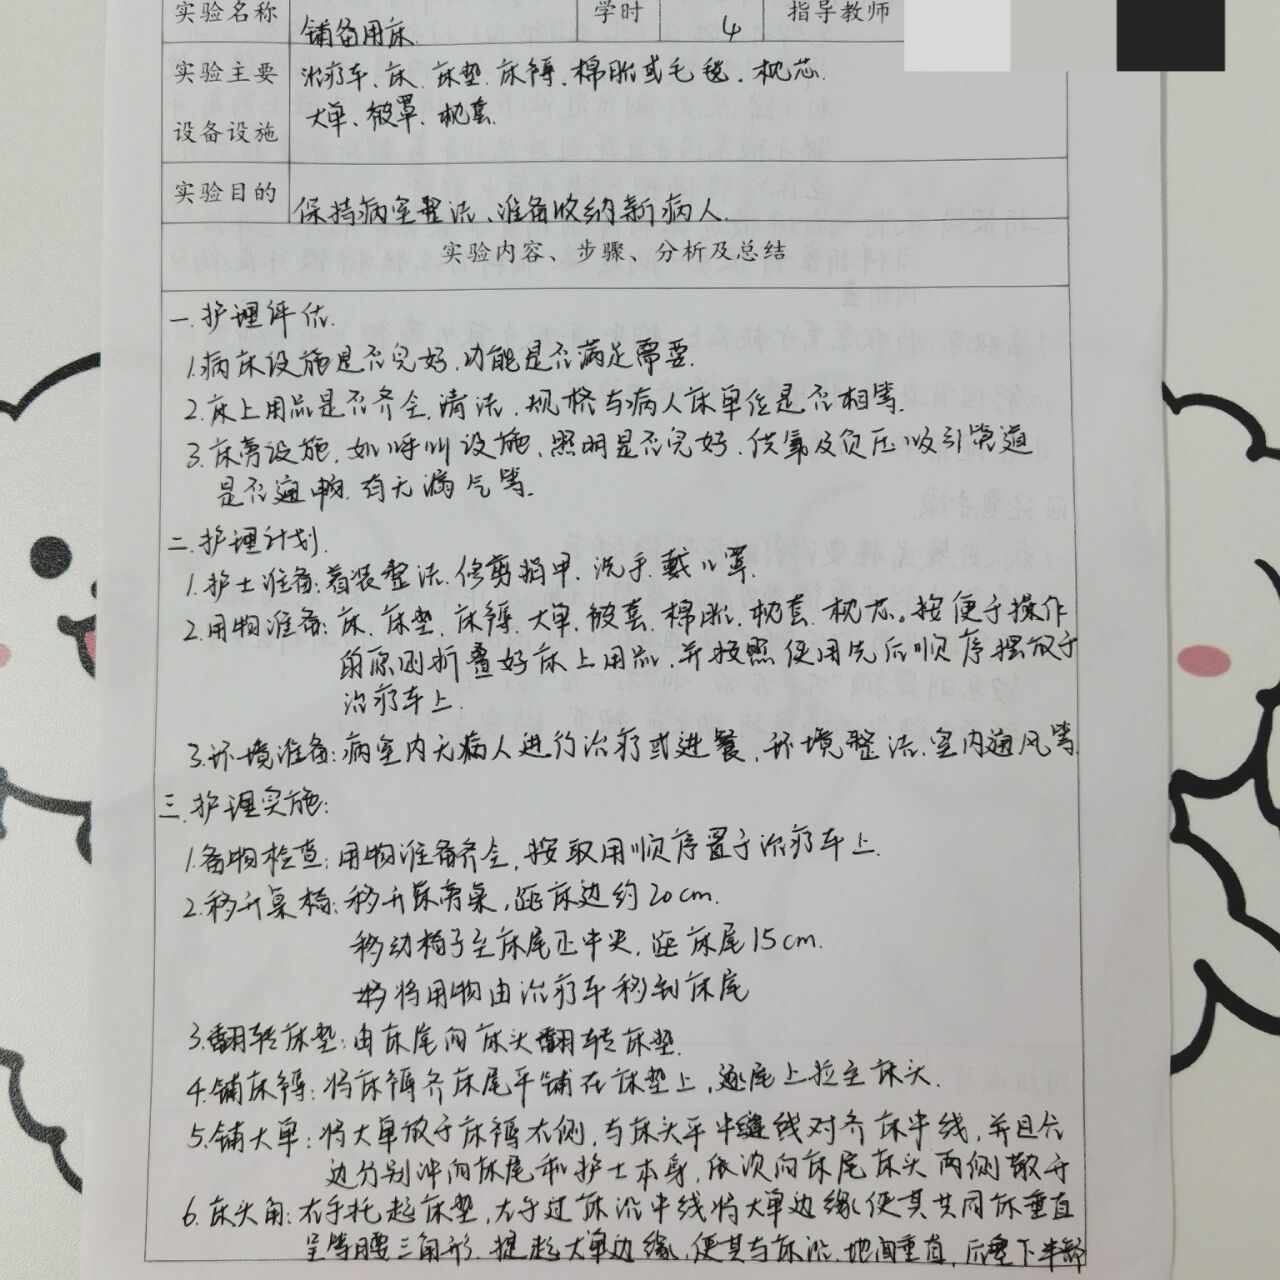 实验名称 铺备用床. 学时 4 指导教师
实验主要 治疗车、床、床垫、床褥、棉胎或毛毯、枕芯.
设备设施 大单、被罩、枕套.
实验目的 保持病室整洁、准备收纳新病人.
实验内容、步骤、分析及总结
一.护理评估.
1.病床设施是否完好,功能是否满足需要.
2.床上用品是否齐全,清洁,规格与病人床单位是否相等.
3.床旁设施,如呼叫设施,照明是否完好,供氧及负压吸引管道
是否通畅,有无漏气等.
二.护理计划.
1.护士准备:着装整洁,修剪指甲,洗手,戴口罩.
2.用物准备:床、床垫、床褥、大单、被套、棉胎、枕套、枕芯。按便于操作
的原则折叠好床上用品,并按照使用先后顺序摆放于
治疗车上.
3.环境准备:病室内无病人进行治疗或进餐,环境整洁,室内通风等
三.护理实施:
1.备物检查:用物准备齐全,按取用顺序置于治疗车上.
2.移开桌椅:移开床旁桌,距床边约20cm.
移动椅子至床尾正中央,距床尾15cm.
将用物由治疗车移到床尾
3.翻转床垫:由床尾向床头翻转床垫.
4.铺床褥:将床褥齐床尾平铺在床垫上,逐尾上拉至床头.
5.铺大单:将大单放于床褥右侧,与床头平中缝线对齐床中线,并且
边分别冲向床尾和护士本身,依次向床尾床头两侧散开
6.床头角:右手托起床垫,左手过床沿中线将大单边缘使其共同床垂直
呈等腰三角形,提起大单边缘,使其与床沿、地面垂直,后垂下半部